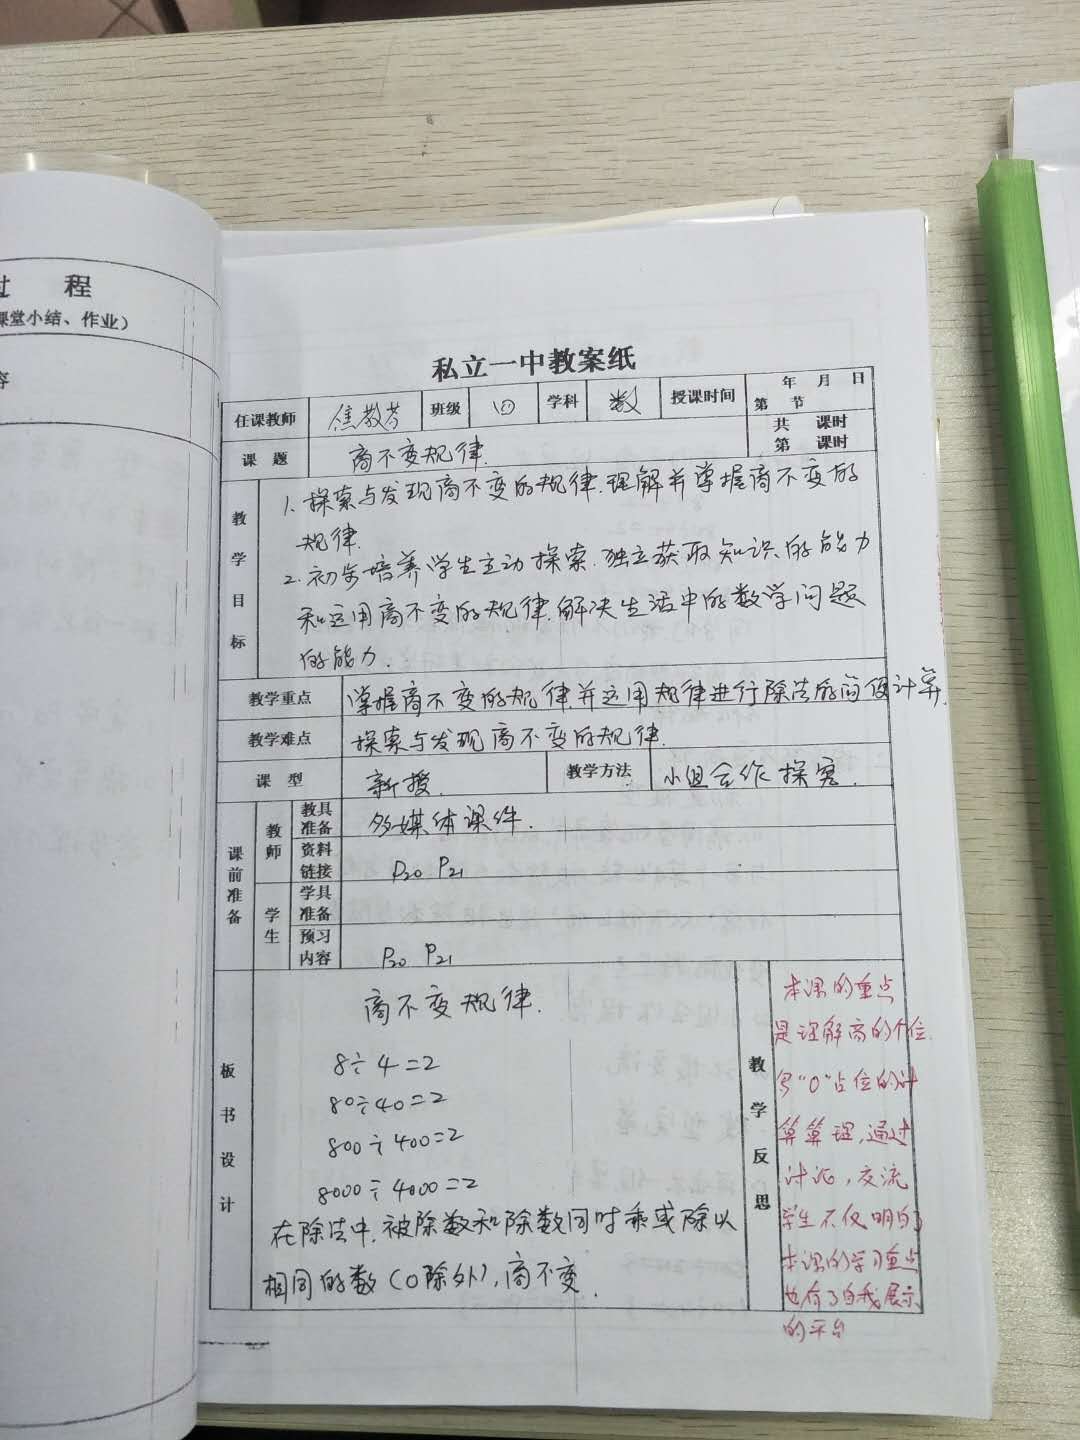 过 程
课堂小结、作业）
容
私立一中教案纸
任课教师 焦教芳 班级 四 学科 数 授课时间 年 月 日
第 节
课 题 商不变规律. 共 课时
第 课时
教学目标
1. 探索与发现商不变的规律.理解并掌握商不变的
规律.
2. 初步培养学生主动探索.独立获取知识的能力
和运用商不变的规律.解决生活中的数学问题
的能力.
教学重点 掌握商不变的规律.并运用规律进行除法的简便计算.
教学难点 探索与发现商不变的规律.
课 型 新授. 教学方法 小组合作探究.
课前准备
教师 教具准备 多媒体课件.
资料链接 P20 P21
学生 学具准备
预习内容 P20 P21
板书设计
商不变规律.
8÷4=2
80÷40=2
800÷400=2
8000÷4000=2
在除法中.被除数和除数同时乘或除以
相同的数（0除外），商不变.
教学反思
本课的重点
是理解商的个位.
写“0”占位的计
算算理，通过
讨论，交流
学生不仅明白了
本课的学习重点
也有了自我展示
的平台